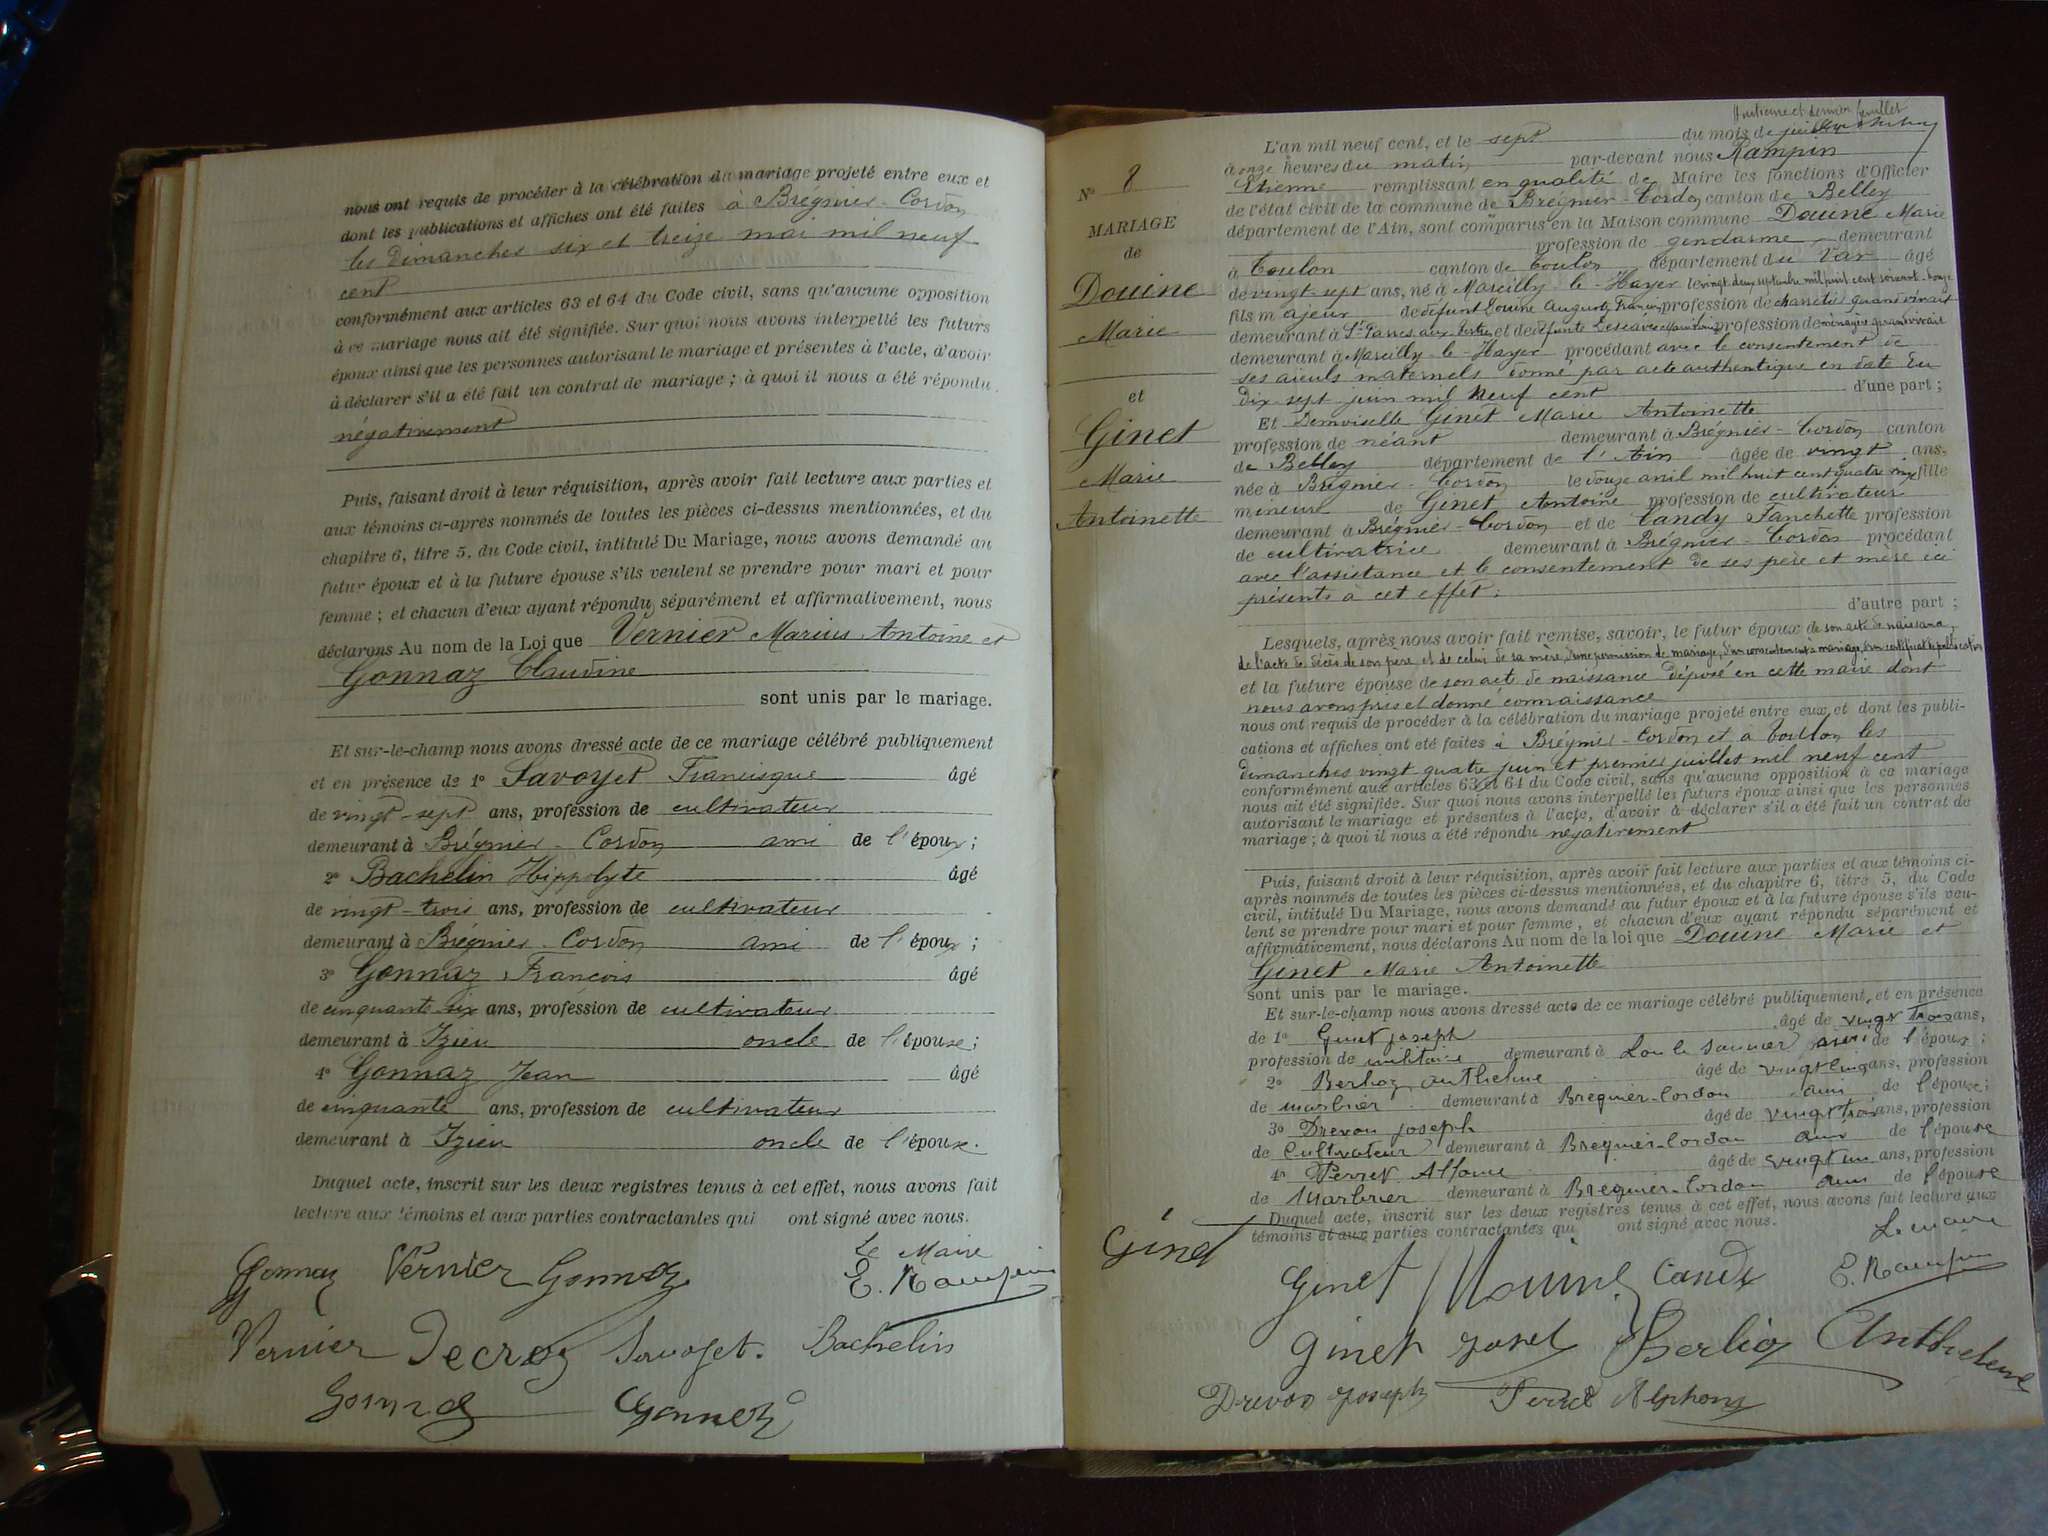 nous ont requis de procéder à la célébration du mariage projeté entre eux et
dont les publications et affiches ont été faites à Brégnier-Cordon
les dimanches six et treize mai mil neuf
cent
conformément aux articles 63 et 64 du Code civil, sans qu'aucune opposition
à ce mariage nous ait été signifiée. Sur quoi nous avons interpellé les futurs
époux ainsi que les personnes autorisant le mariage et présentes à l'acte, d'avoir
à déclarer s'il a été fait un contrat de mariage ; à quoi il nous a été répondu
négativement
Puis, faisant droit à leur réquisition, après avoir fait lecture aux parties et
aux témoins ci-après nommés de toutes les pièces ci-dessus mentionnées, et du
chapitre 6, titre 5, du Code civil, intitulé Du Mariage, nous avons demandé au
futur époux et à la future épouse s'ils veulent se prendre pour mari et pour
femme ; et chacun d'eux ayant répondu séparément et affirmativement, nous
déclarons Au nom de la Loi que Vernier Marius Antoine et
Gonnaz Claudine
sont unis par le mariage.
Et sur-le-champ nous avons dressé acte de ce mariage célébré publiquement
et en présence de 1° Savoyet Francisque âgé
de vingt-sept ans, profession de cultivateur
demeurant à Brégnier-Cordon ami de l'époux ;
2° Bachelin Hippolyte âgé
de vingt-trois ans, profession de cultivateur
demeurant à Brégnier-Cordon ami de l'époux ;
3° Gonnaz François âgé
de cinquante six ans, profession de cultivateur
demeurant à Izieu oncle de l'épouse ;
4° Gonnaz Jean âgé
de cinquante ans, profession de cultivateur
demeurant à Izieu oncle de l'épouse.
Duquel acte, inscrit sur les deux registres tenus à cet effet, nous avons fait
lecture aux témoins et aux parties contractantes qui ont signé avec nous.
Le Maire
Gonnaz Vernier Gonnaz E. Rampin
Vernier Decroz Savoyet. Bachelin
Gonnaz Gonnaz
N° 8
MARIAGE
de
Douine
Marie
et
Ginet
Marie
Antoinette
Huitième et dernier feuillet
L'an mil neuf cent, et le sept du mois de juillet
à onze heures du matin par-devant nous Rampin
Etienne remplissant en qualité de Maire les fonctions d'Officier
de l'état civil de la commune de Brégnier-Cordon canton de Belley
département de l'Ain, sont comparus en la Maison commune Douine Marie
profession de gendarme demeurant
à Toulon canton de Toulon département du Var âgé
de vingt-sept ans, né à Marcilly-le-Hayer le vingt deux septembre mil huit cent soixante-douze
fils majeur de défunt Douine Auguste profession de charretier quand vivait
demeurant à St Parres-aux-Tertres et de défunte profession de ménagère quand vivait
demeurant à Marcilly-le-Hayer procédant avec le consentement de
ses aïeuls maternels donné par acte authentique en date du
dix-sept juin mil neuf cent d'une part ;
Et Demoiselle Ginet Marie Antoinette
profession de néant demeurant à Brégnier-Cordon canton
de Belley département de l'Ain âgée de vingt ans,
née à Brégnier-Cordon le douze avril mil huit cent quatre vingt fille
mineure de Ginet Antoine profession de cultivateur
demeurant à Brégnier-Cordon et de Candy Fanchette profession
de cultivatrice demeurant à Brégnier-Cordon procédant
avec l'assistance et le consentement de ses père et mère ici
présents à cet effet.
d'autre part ;
Lesquels, après nous avoir fait remise, savoir, le futur époux de son acte de naissance,
de l'acte de décès de son père et de celui de sa mère, d'une permission de mariage, d'un consentement à mariage, d'un certificat de publication
et la future épouse de son acte de naissance déposé en cette mairie dont
nous avons pris et donné connaissance
nous ont requis de procéder à la célébration du mariage projeté entre eux et dont les publi-
cations et affiches ont été faites à Brégnier-Cordon et à Toulon les
dimanches vingt quatre juin et premier juillet mil neuf cent
conformément aux articles 63 et 64 du Code civil, sans qu'aucune opposition à ce mariage
nous ait été signifiée. Sur quoi nous avons interpellé les futurs époux ainsi que les personnes
autorisant le mariage et présentes à l'acte, d'avoir à déclarer s'il a été fait un contrat de
mariage ; à quoi il nous a été répondu négativement
Puis, faisant droit à leur réquisition, après avoir fait lecture aux parties et aux témoins ci-
après nommés de toutes les pièces ci-dessus mentionnées, et du chapitre 6, titre 5, du Code
civil, intitulé Du Mariage, nous avons demandé au futur époux et à la future épouse s'ils veu-
lent se prendre pour mari et pour femme, et chacun d'eux ayant répondu séparément et
affirmativement, nous déclarons Au nom de la loi que Douine Marie et
Ginet Marie Antoinette
sont unis par le mariage.
Et sur-le-champ nous avons dressé acte de ce mariage célébré publiquement, et en présence
de 1° Ginet Joseph âgé de vingt trois ans,
profession de militaire demeurant à Lons le Saunier de l'époux ;
2° Berlioz Anthelme âgé de vingt cinq ans, profession
de marbrier demeurant à Bregnier-Cordon ami de l'épouse ;
3° Drevon Joseph âgé de vingt trois ans, profession
de Cultivateur demeurant à Bregnier-Cordon ami de l'épouse
4° Perret Alfonse âgé de vingt un ans, profession
de Marbrier demeurant à Bregnier-Cordon ami de l'épouse
Duquel acte, inscrit sur les deux registres tenus à cet effet, nous avons fait lecture aux
témoins et aux parties contractantes qui ont signé avec nous.
Le maire
Ginet
Ginet Douine Candy E. Rampin
Ginet Josel Berlioz Anthelme
Drevon Joseph Perret Alphons